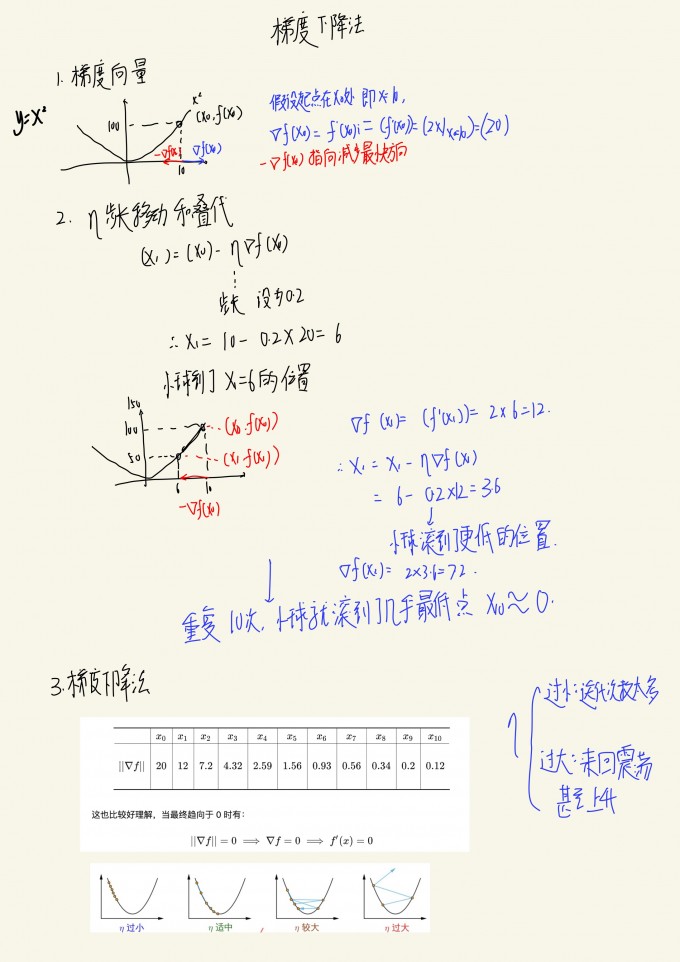 梯度下降法
1. 梯度向量
y=x²
x²
(x₀,f(x₀)
100
-∇f(x₀)
∇f(x₀)
10
假设起点在x₀处 即x=10,
∇f(x₀)= f'(x₀)i = (f'(x₀))=(2x|x=10)=(20)
-∇f(x₀) 指向减少最快方向
2. η 步长移动和叠代
(x₁)=(x₀)-η∇f(x₀)
步长 设为0.2
∴ x₁= 10-0.2×20= 6
小球到了 x₁=6的位置
150
100
50
(x₀,f(x₀))
(x₁,f(x₁))
6 10
-∇f(x₀)
∇f(x₁)= (f'(x₁))= 2×6=12.
∴ x₂= x₁-η∇f(x₁)
= 6-0.2×12=3.6
小球滚到了更低的位置.
∇f(x₂)= 2×3.6=7.2.
重复 10次, 小球就滚到了几乎最低点 x₁₀≈0.
3.梯度下降法
x₀ x₁ x₂ x₃ x₄ x₅ x₆ x₇ x₈ x₉ x₁₀
||∇f|| 20 12 7.2 4.32 2.59 1.56 0.93 0.56 0.34 0.2 0.12
这也比较好理解，当最终趋向于 0 时有：
||∇f|| = 0 ⟹ ∇f = 0 ⟹ f′(x) = 0
η 过小 η 适中 η 较大 η 过大
η
过小:迭代次数太多
过大:来回震荡
甚至上升